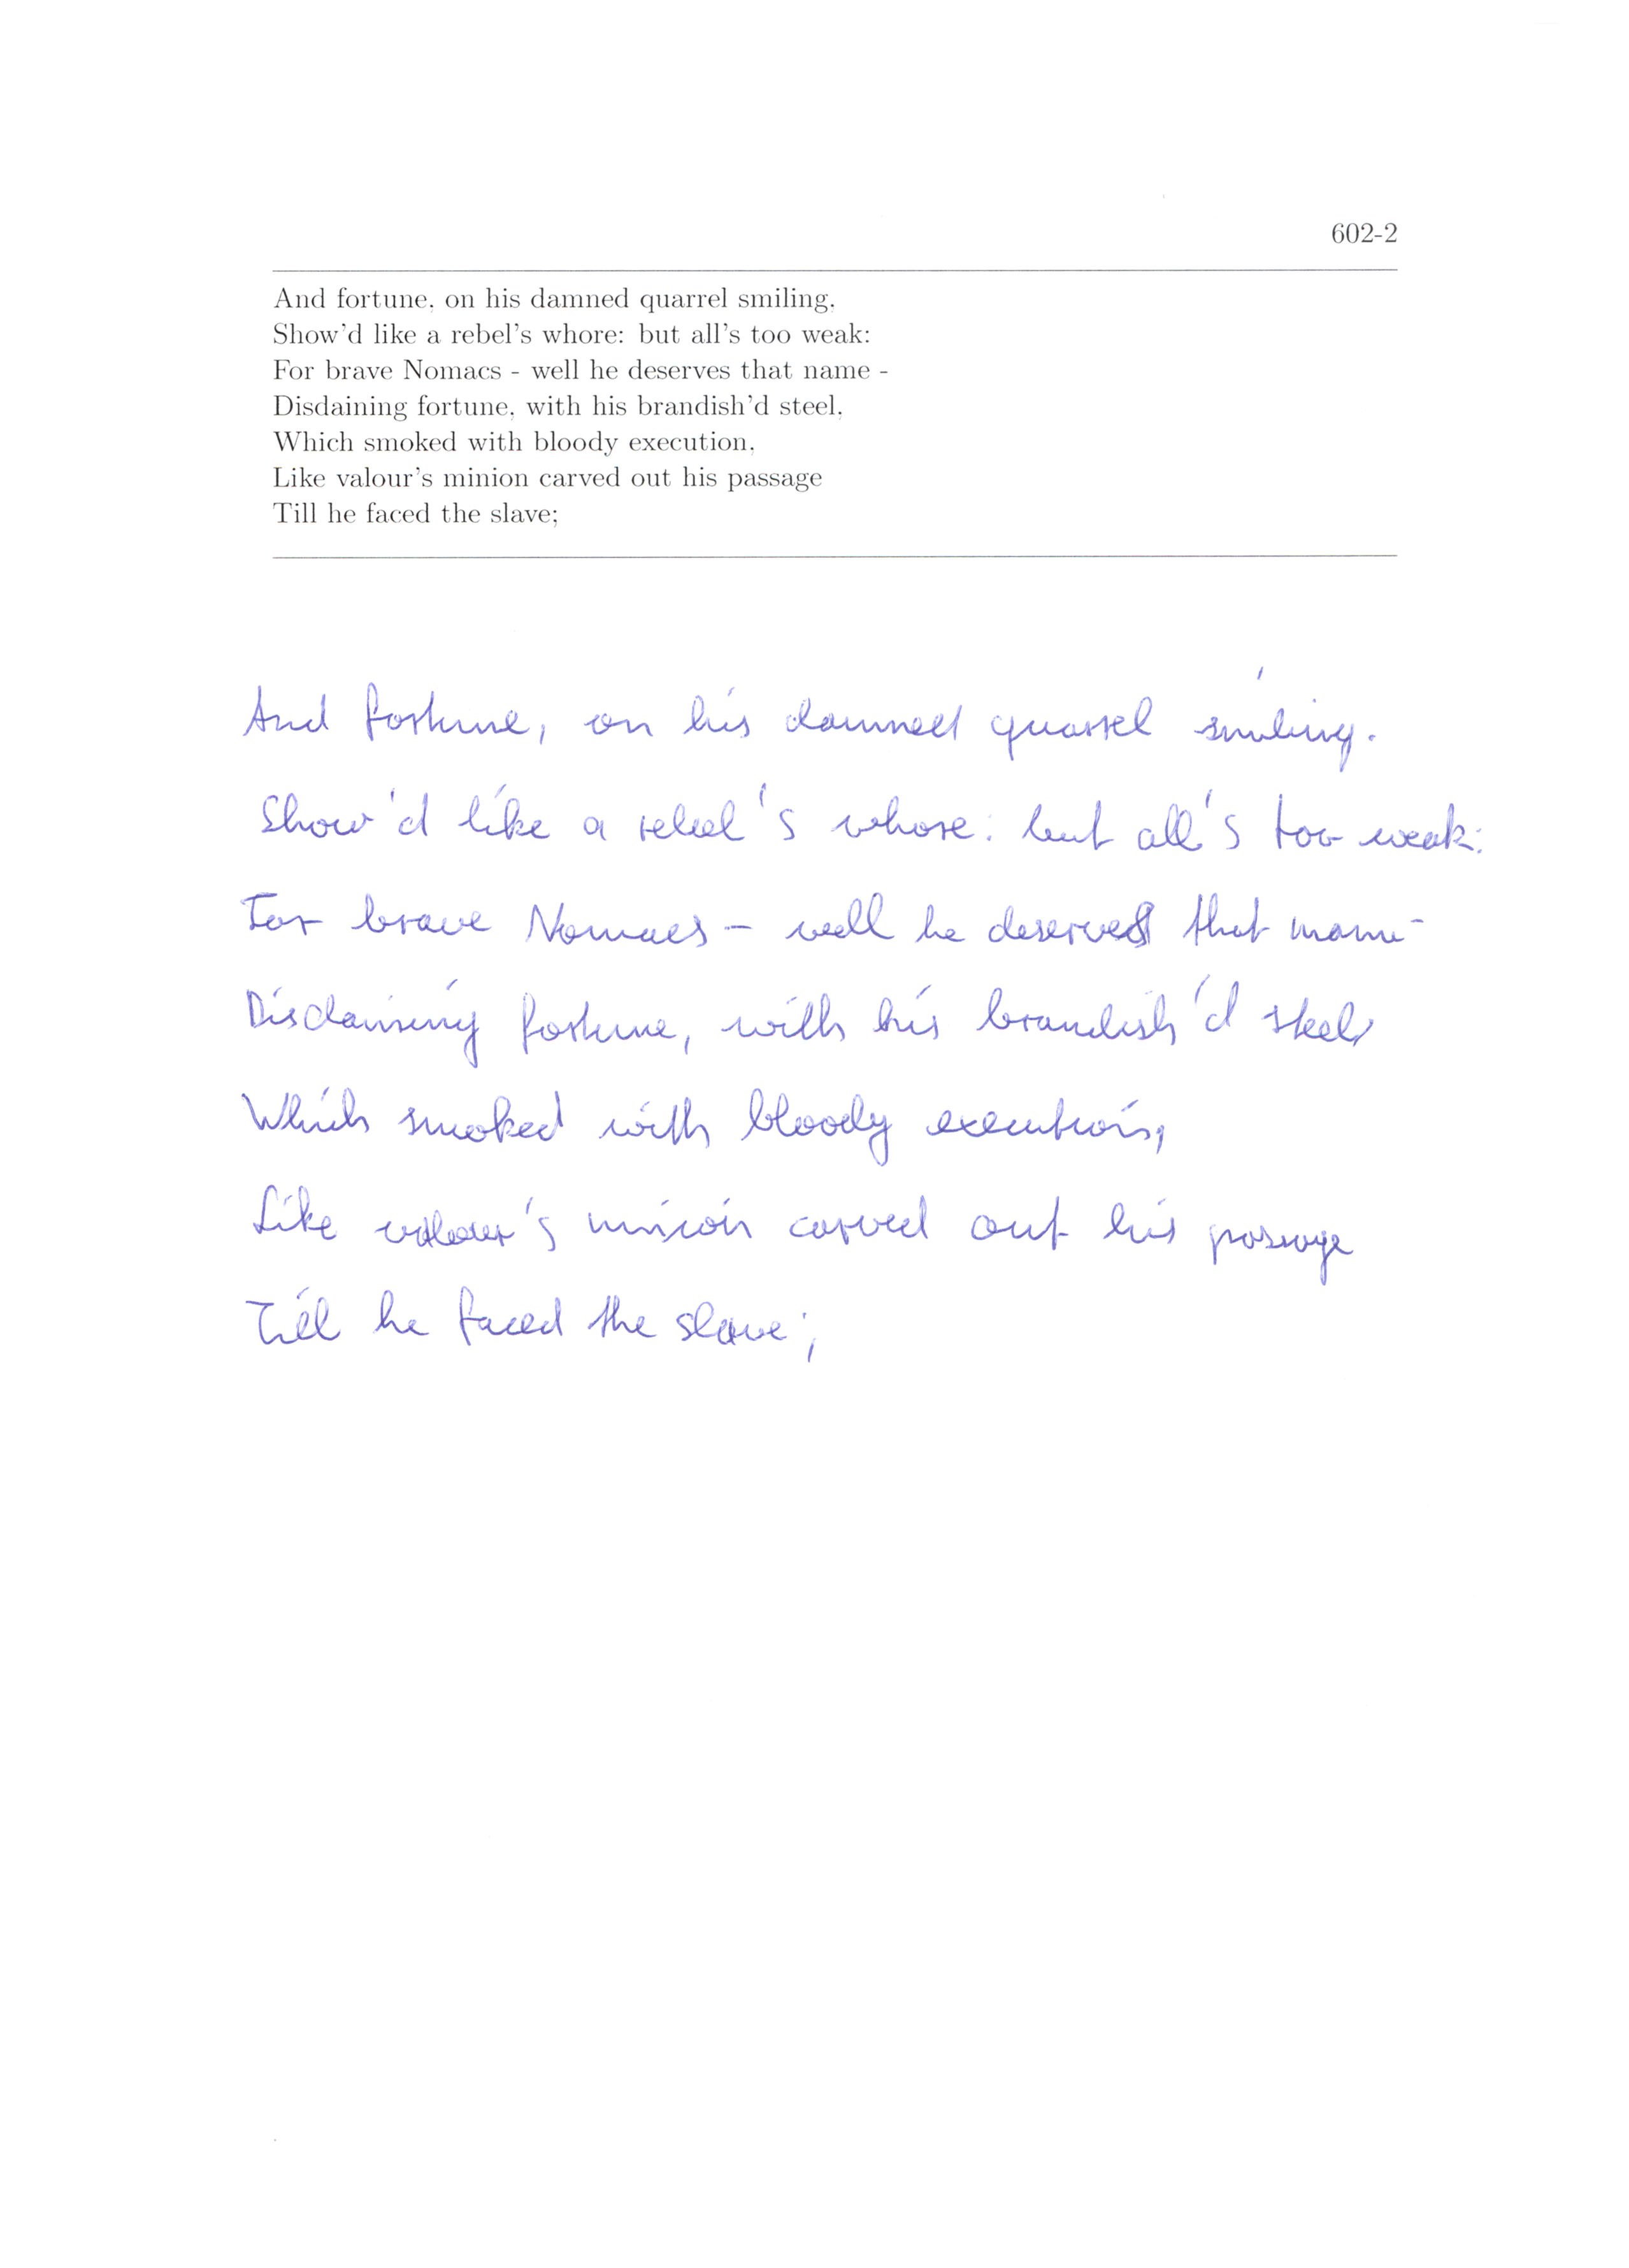 602-2
And fortune, on his damned quarrel smiling,
Show'd like a rebel's whore: but all's too weak:
For brave Nomacs - well he deserves that name -
Disdaining fortune, with his brandish'd steel,
Which smoked with bloody execution,
Like valour's minion carved out his passage
Till he faced the slave;
And fortune, on his damned quarrel smiling.
Show'd like a rebel's whore: but all's too weak:
For brave Nomacs - well he deserves that name -
Disdaining fortune, with his brandish'd steel,
Which smoked with bloody execution,
Like valour's minion carved out his passage
Till he faced the slave;